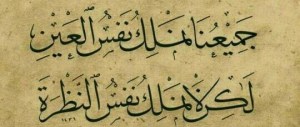 جَمِيعُنَا نَملِكُ نَفسُ ٱلعَينِ
لَكِن لَا نَملِكُ نَفسُ ٱلنَّظرَة